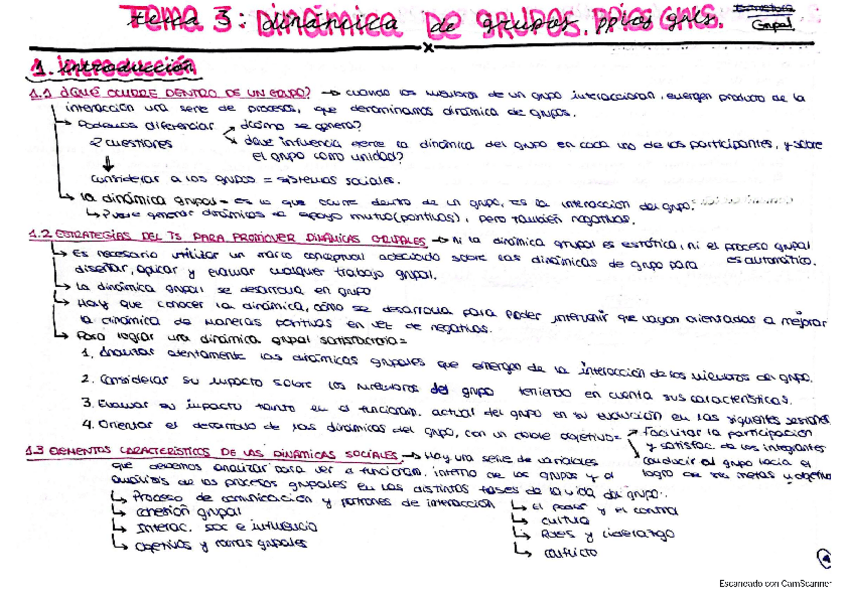 Tema 3: Dinámica de grupos. ppios grls.
Grupal
1. Introducción
1.1 ¿QUÉ OCURRE DENTRO DE UN GRUPO? → cuando los miembros de un grupo interaccionan, emergen producto de la
interacción una serie de procesos, que denominamos dinámica de grupos.
↳ Podemos diferenciar → ¿Cómo se genera?
2 cuestiones → ¿Qué influencia tiene la dinámica del grupo en cada uno de los participantes, y sobre
el grupo como unidad?
↓
considerar a los grupos = sistemas sociales.
↳ La dinámica grupal = es lo que ocurre dentro de un grupo, es la interacción del grupo.
↳ Puede generar dinámicas de apoyo mutuo (positivas), pero también negativas.
1.2 ESTRATEGIAS DEL TS PARA PROMOVER DINÁMICAS GRUPALES → Ni la dinámica grupal es estática, ni el proceso grupal
es automático.
↳ Es necesario utilizar un marco conceptual adecuado sobre las dinámicas de grupo para
diseñar, aplicar y evaluar cualquier trabajo grupal.
↳ La dinámica grupal se desarrolla en grupo
↳ Hay que conocer la dinámica, cómo se desarrolla para poder intervenir que vayan orientadas a mejorar
la dinámica de maneras positivas en vez de negativas.
↳ Para lograr una dinámica grupal satisfactoria =
1. Analizar atentamente las dinámicas grupales que emergen de la interacción de los miembros del grupo.
2. Considerar su impacto sobre los miembros del grupo teniendo en cuenta sus características.
3. Evaluar su impacto tanto en el funcionam. actual del grupo en su evolución en las siguientes sesiones
4. Orientar el desarrollo de las dinámicas del grupo, con un doble objetivo = → Facilitar la participación
y satisfac. de los integrantes
→ conducir al grupo hacia el
logro de sus metas y objetivo
1.3 ELEMENTOS CARACTERÍSTICOS DE LAS DINÁMICAS SOCIALES → Hay una serie de variables
que debemos analizar para ver el funcionam. interno de los grupos y el
análisis de los procesos grupales en las distintas fases de la vida del grupo:
↳ Proceso de comunicación y patrones de interacción
↳ cohesión grupal
↳ Interac. soc e influencia
↳ Objetivos y normas grupales
↳ El poder y el control
↳ cultura
↳ Roles y liderazgo
↳ conflicto
Escaneado con CamScanner